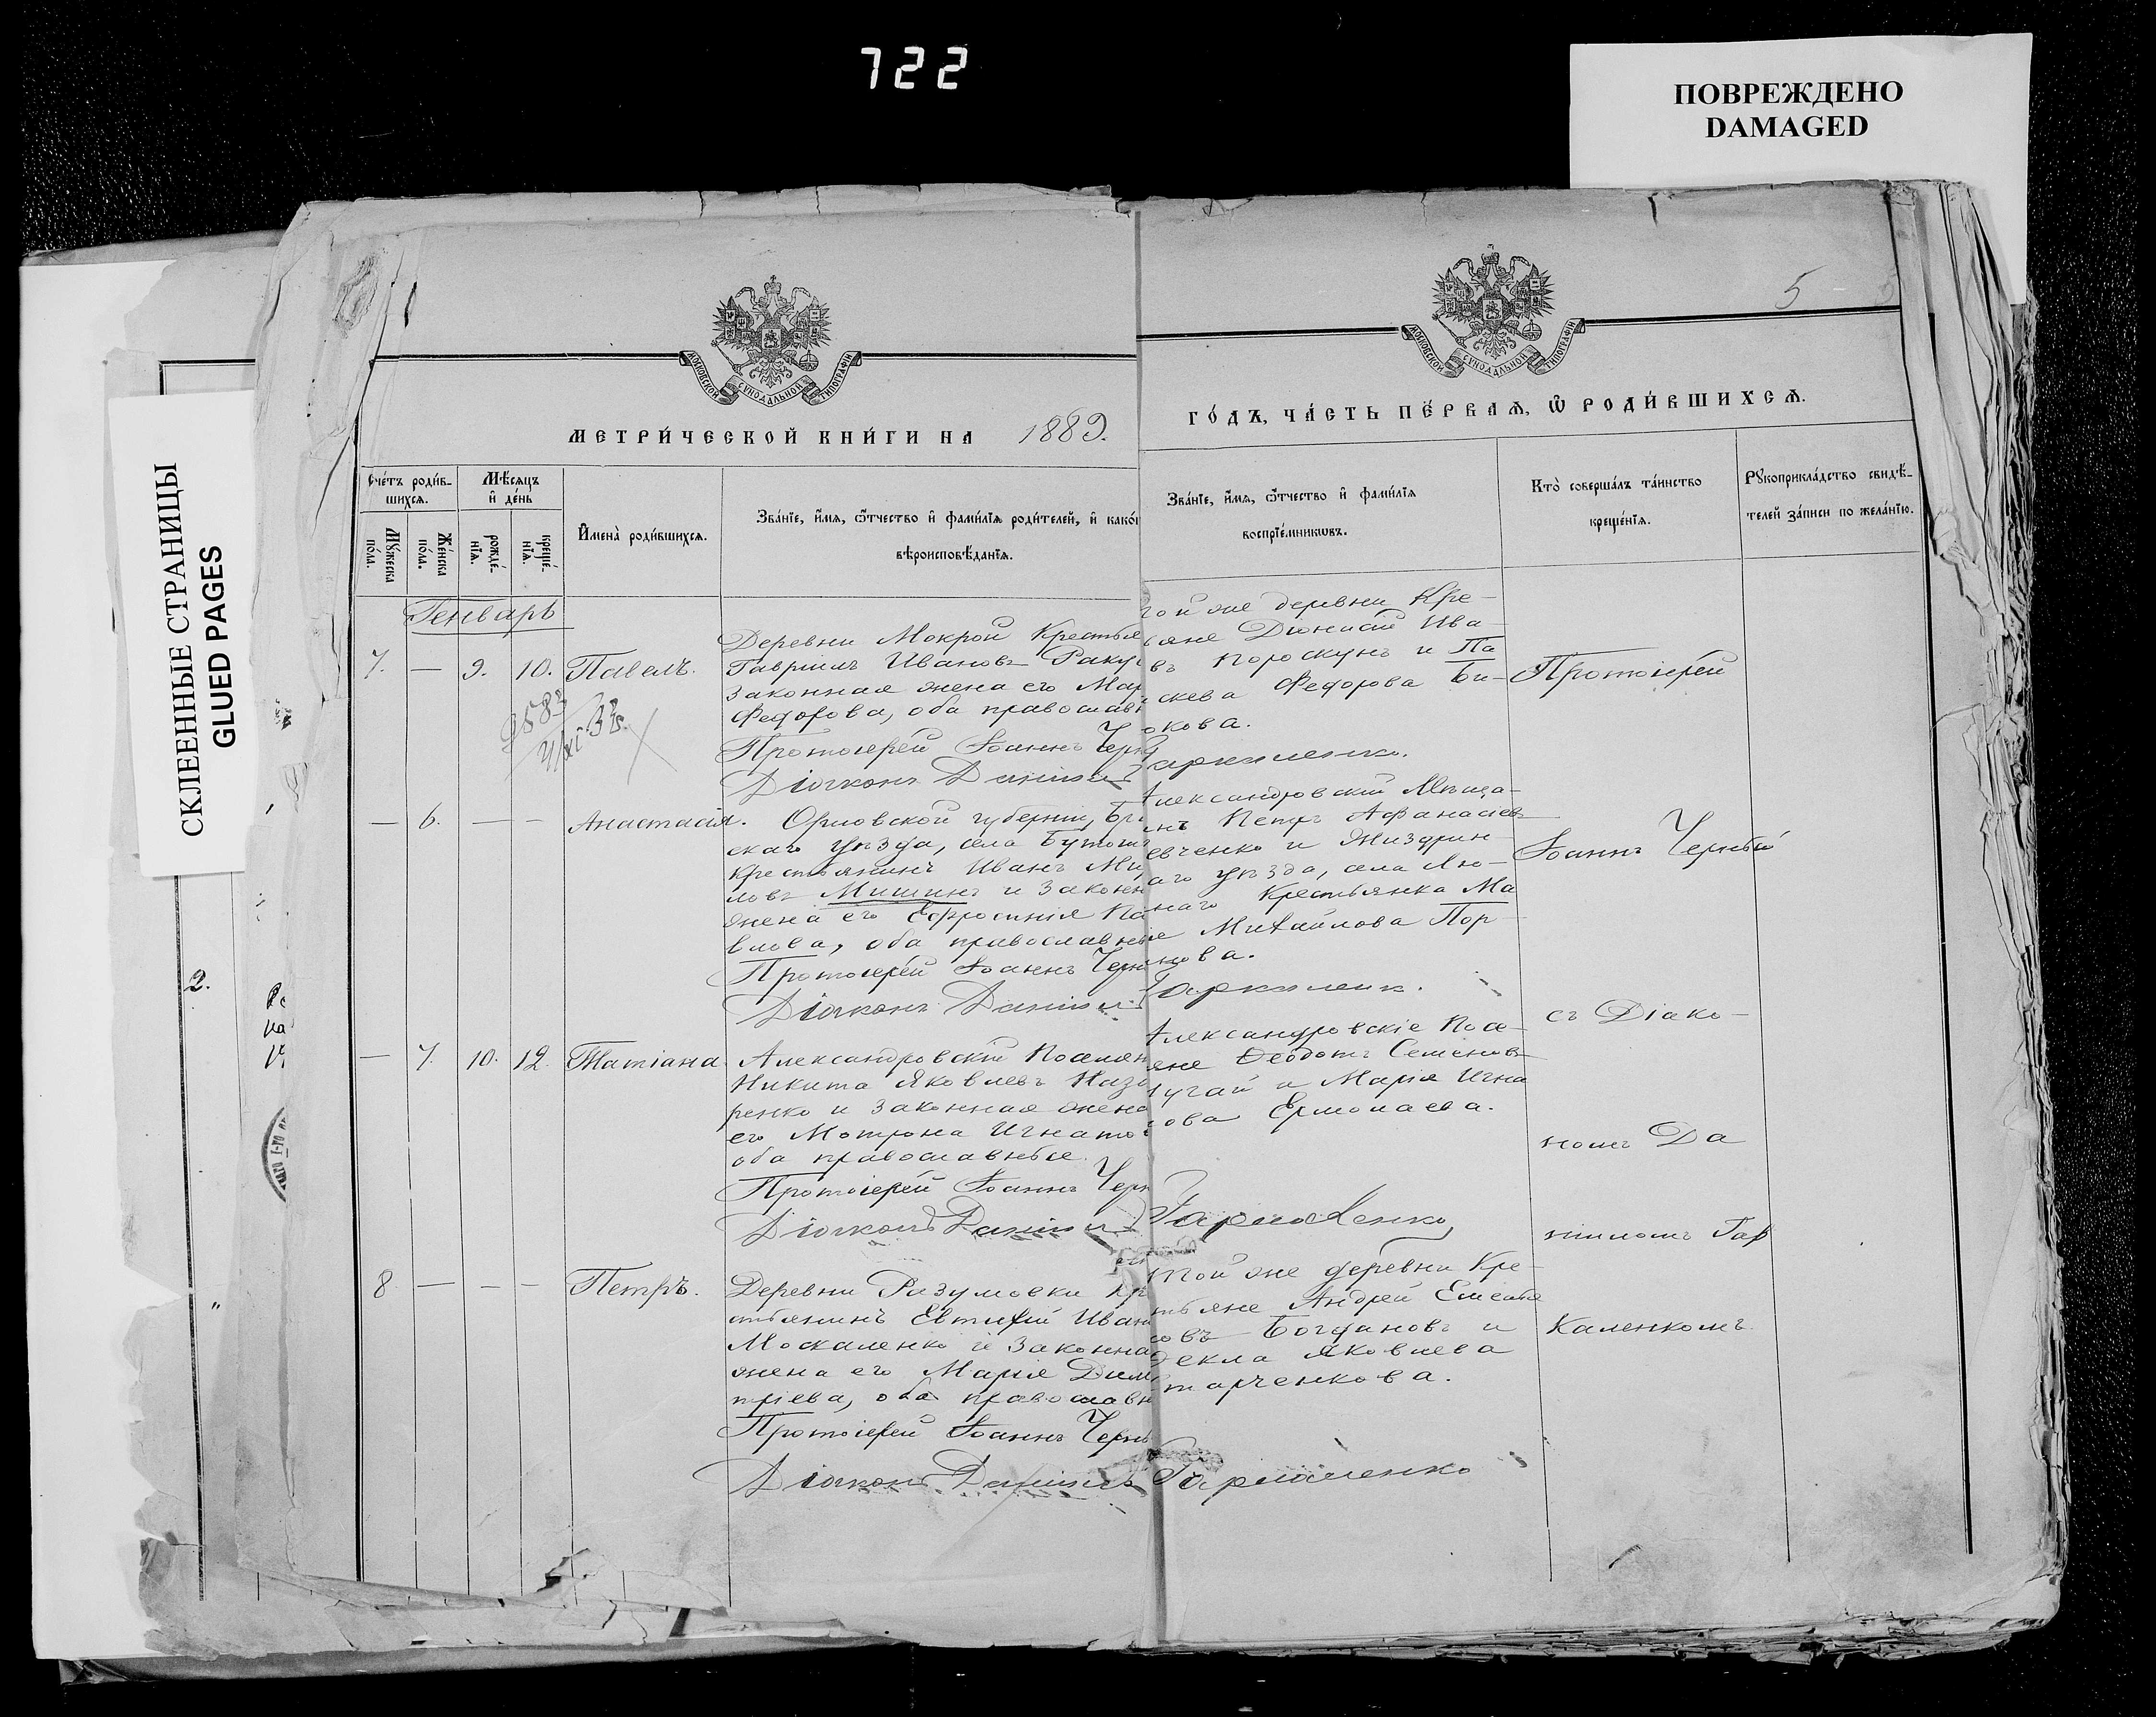 722
ПОВРЕЖДЕНО
DAMAGED
СКЛЕЕННЫЕ СТРАНИЦЫ
GLUED PAGES
5
МОСКОВСКОЙ СУНОДАЛЬНОЙ ТИПОГРАФІИ
МОСКОВСКОЙ СУНОДАЛЬНОЙ ТИПОГРАФІИ
МЕТРИ́ЧЕСКОЙ КНИ́ГИ НА 1889.
ГО́ДЪ, ЧА́СТЬ ПЕ́РВАѦ, Ѡ҃ РОДИ́ВШИХСѦ.
Сче́тъ роди́в-
шихсѧ.
Мѣ́сяцъ
и҆ де́нь
Мꙋ́жеска
по́ла.
Же́нска
по́ла.
рожде́-
нїѧ.
креще́-
нїѧ.
И҆мена̀ роди́вшихсѧ.
Зва́нїе, и҆́мѧ, ѻ҆́тчество и҆ фами́лїѧ роди́телей, и҆ како́г
вѣроисповѣ́данїѧ.
Зва́нїе, и҆́мѧ, ѻ҆́тчество и҆ фами́лїѧ
воспрїе́мникѡвъ.
Кто̀ соверша́лъ та́инство
креще́нїѧ.
Рꙋкоприкла́дство свидѣ́-
телей за́писи по жела́нїю.
Генварь
7. — 9. 10. Павелъ.
Деревни Мокрой Крестья
Гавриилъ Ивановъ Раку
законная жена его Мар
Федорова, оба православн
Протоіерей Іоаннъ Черн
Діаконъ Даніилъ
той же деревни Кре-
яне Діонисій Ива-
въ Поросжунъ и Па
скева Федорова Би-
окова.
Гаркаленко.
Протоіерей
— 6. — — Анастасія.
Орловской губерніи, Бр
скаго уѣзда, села Бутот
Крестьянинъ Иванъ Ми
ловъ Мишинъ и законн
жена его Ефросинія Па
влова, оба православны
Протоіерей Іоаннъ Черн
Діаконъ Даніилъ
Александровскій Мѣща-
нъ Петръ Афанасіев
евченко и Жиздрин-
аго уѣзда, села Лю-
наго Крестьянка Ма
Михайлова Пор-
нова.
Іоаннъ Черный
— 7. 10. 12. Татіана.
Александровскій Поселян
Никита Яковлевъ Наза
ренко и законная жена
его Мотрона Игнатов
оба православные.
Протоіерей Іоаннъ Черн
Діаконъ Даніилъ
Александровскіе Посе-
яне Ѳеодотъ Семеновъ
Лугай и Марія Игна
ова Ермолаева.
съ Діако-
номъ Да
ніиломъ Гар
8 — — — Петръ.
Деревни Разумовки Кр
стьянинъ Евтихій Иван
Москаленко и законна
жена его Марія Дим
тріева, оба православн
Протоіерей Іоаннъ Черны
Діаконъ Даніилъ
той же деревни Кре-
стьяне Андрей Елисѣе
овъ Богдановъ и
Ѳекла Яковлева
тарченкова.
Каленкомъ
2.